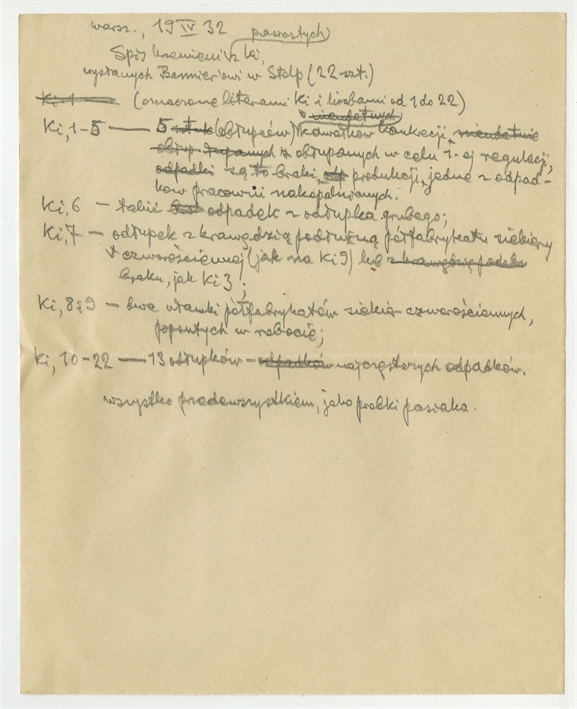 Warsz., 19 IV 32 pasiastych
Spis krzemieni z Ki,
wysłanych Basmierowi w Stolp (22-szt.)
Ki 1 (oznaczone literami Ki i liczbami od 1 do 22)
nieobitnych
Ki, 1-5 — 5 sztuk (obłupców) kawałków konkrecji,
obłupanych w celu 1-ej regulacji,
odpadki są to braki produkcji, jedne z odpad-
ków pracowni nakopalnianych.
Ki, 6 — takiż odpadek z odłupka grubego;
Ki, 7 — odłupek z krawędzią podłużną półfabrykatu siekiery
czworościennej (jak na Ki 9) lub
braku, jak Ki 3;
Ki, 8 i 9 — dwa ułamki półfabrykatów siekier czworościennych,
popsutych w robocie;
Ki, 10-22 — 13 odłupków — odpadków najczęstszych odpadków.
wszystko przedewszystkiem, jako próbki pasiaka.